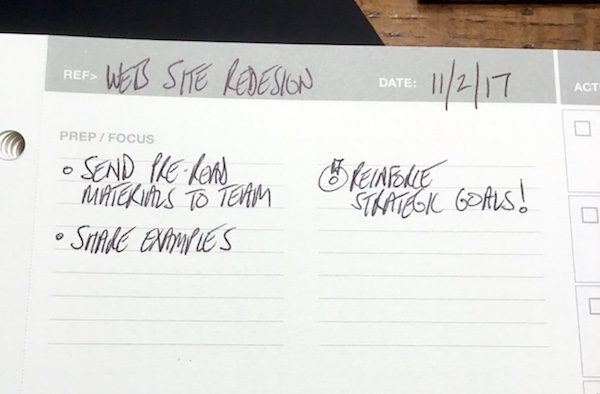 REF> WEB SITE REDESIGN
DATE: 11/2/17
ACT
PREP / FOCUS
• SEND PRE-READ
MATERIALS TO TEAM
• SHARE EXAMPLES
REINFORCE
STRATEGIC GOALS!